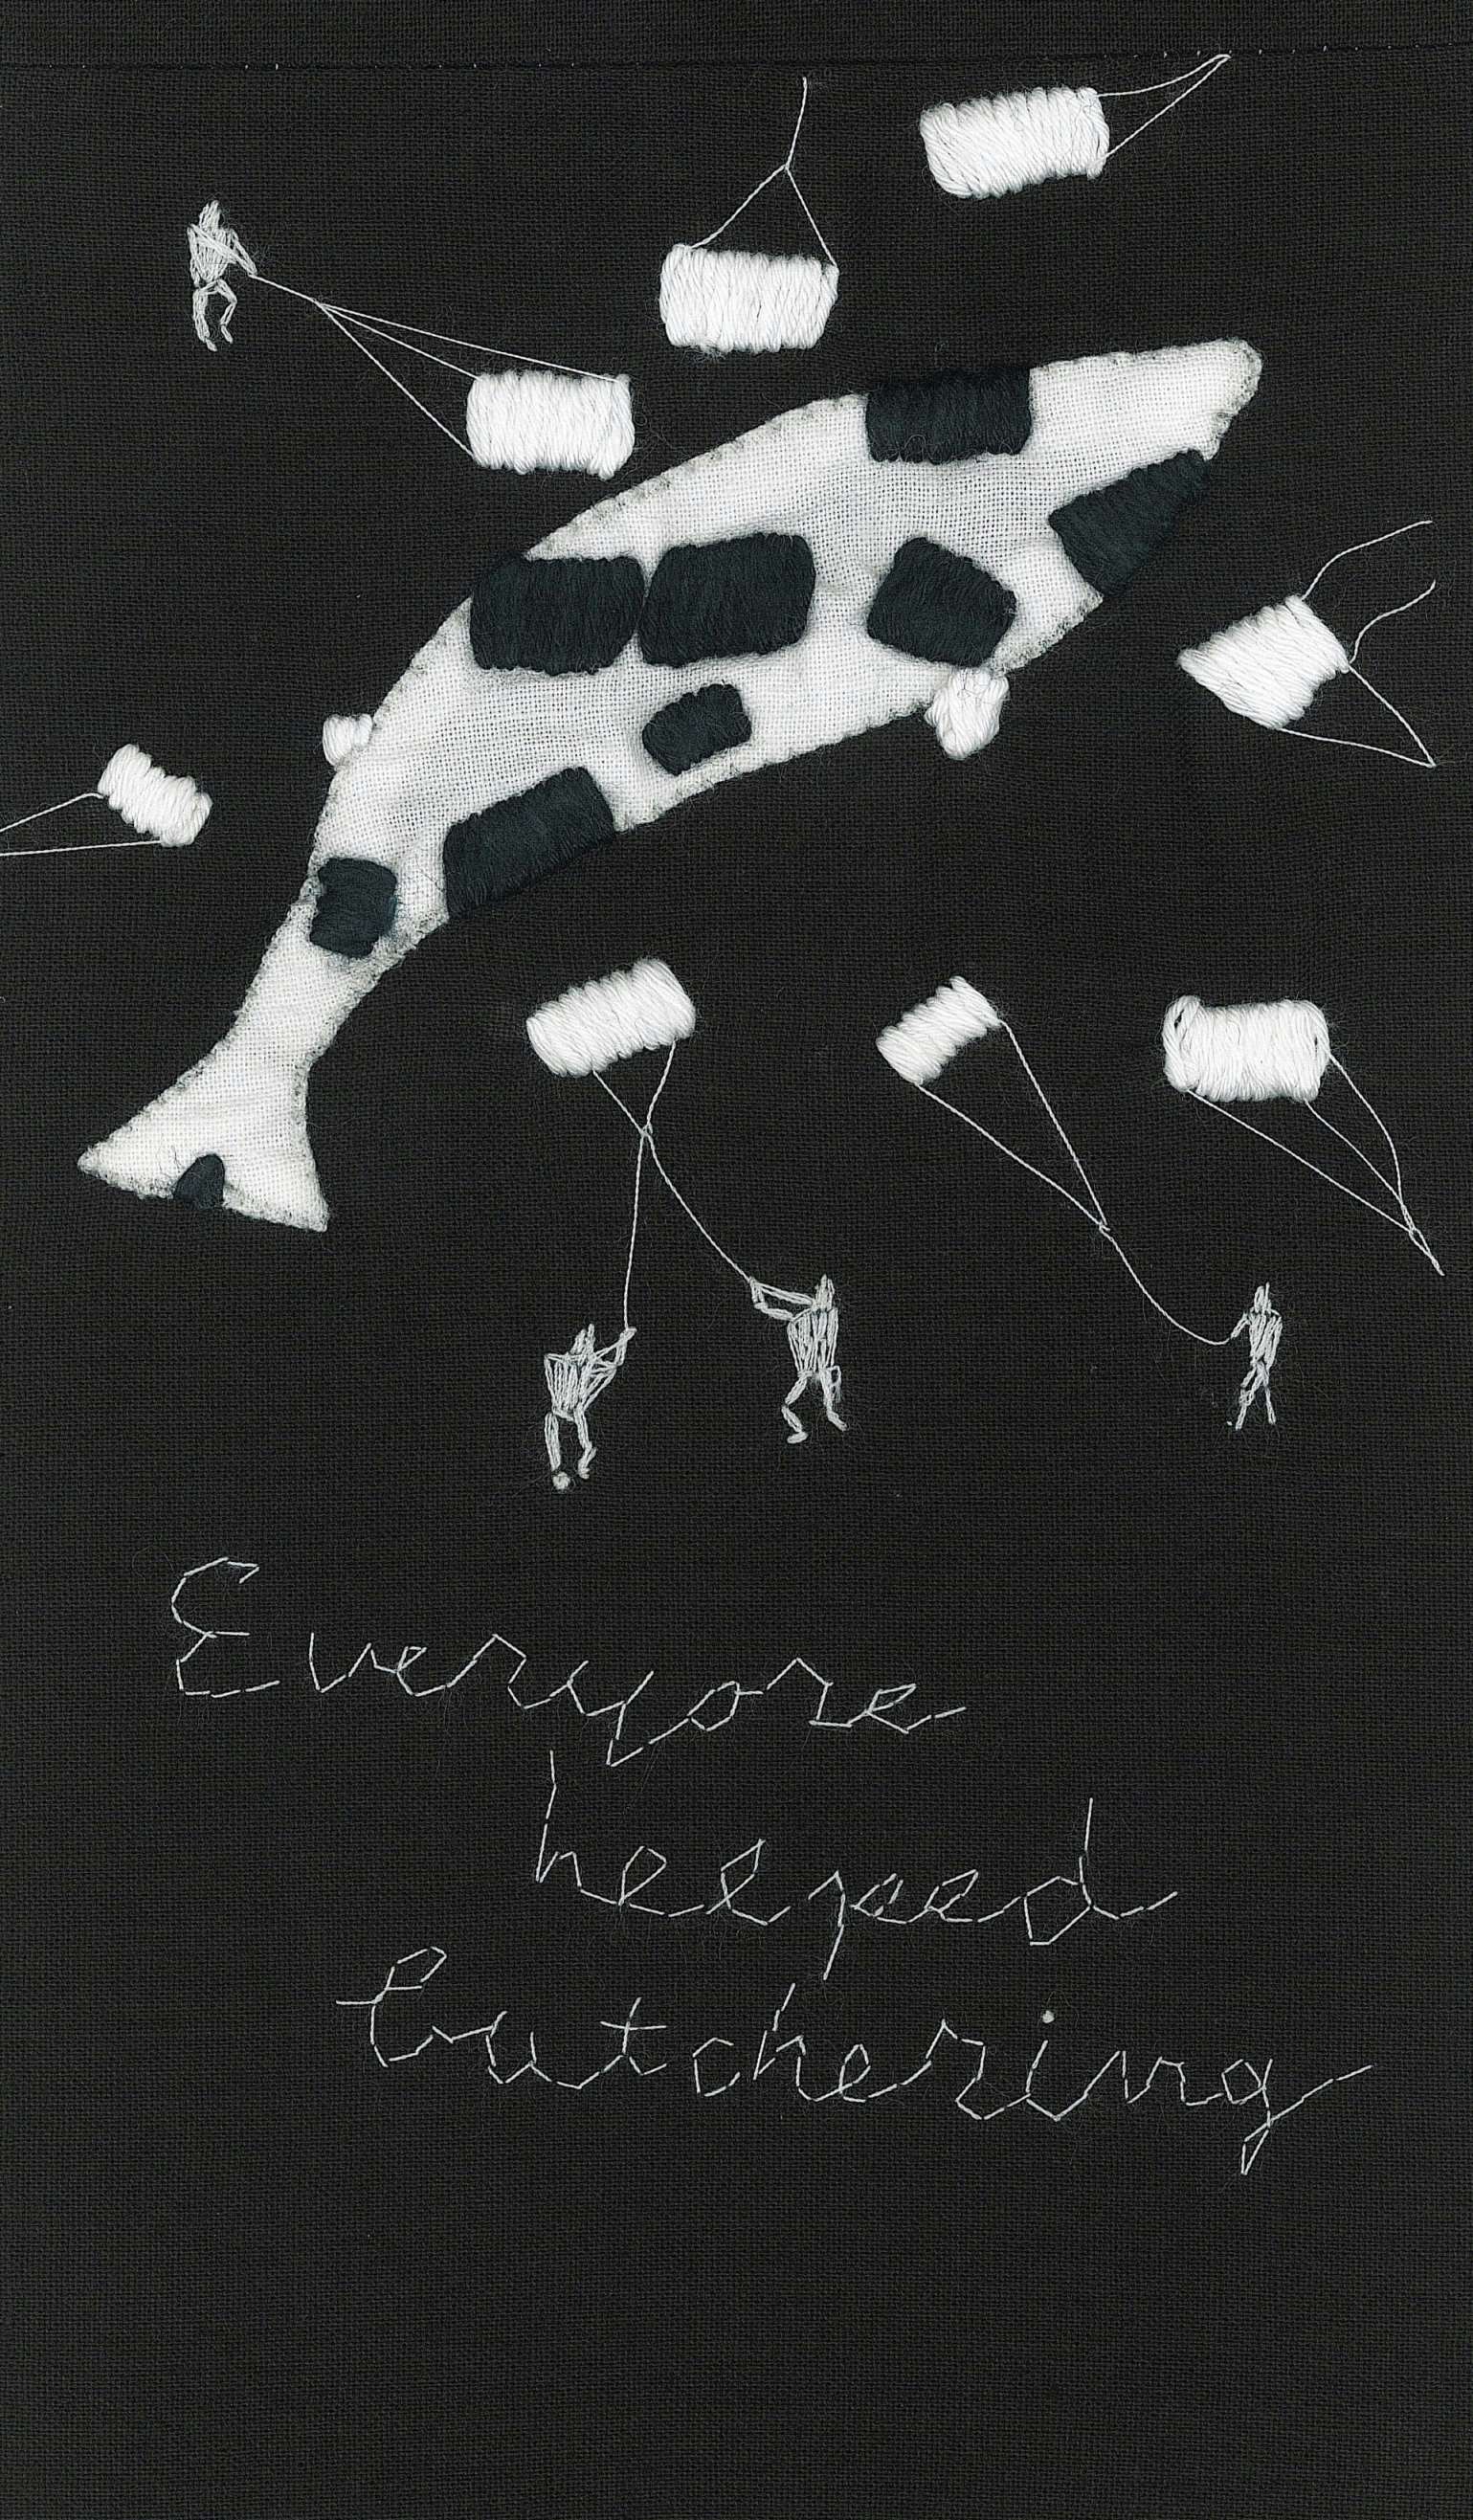 Everyone
helped
butchering